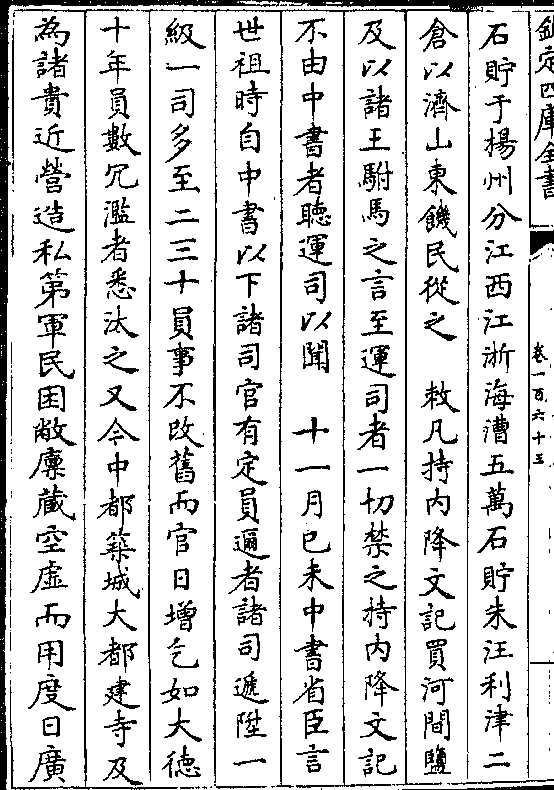 欽定四庫全書
卷一百六十三
石貯于楊州分江西江浙海漕五萬石貯朱汪利津二
倉以濟山東饑民從之　敕凡持內降文記買河間鹽
及以諸王駙馬之言至運司者一切禁之持內降文記
不由中書者聽運司以聞　十一月已未中書省臣言
世祖時自中書以下諸司官有定員邇者諸司遞陞一
級一司多至二三十員事不改舊而官日增乞如大德
十年員數冗濫者悉汰之又今中都築城大都建寺及
為諸貴近營造私第軍民困敝廩藏空虛而用度日廣